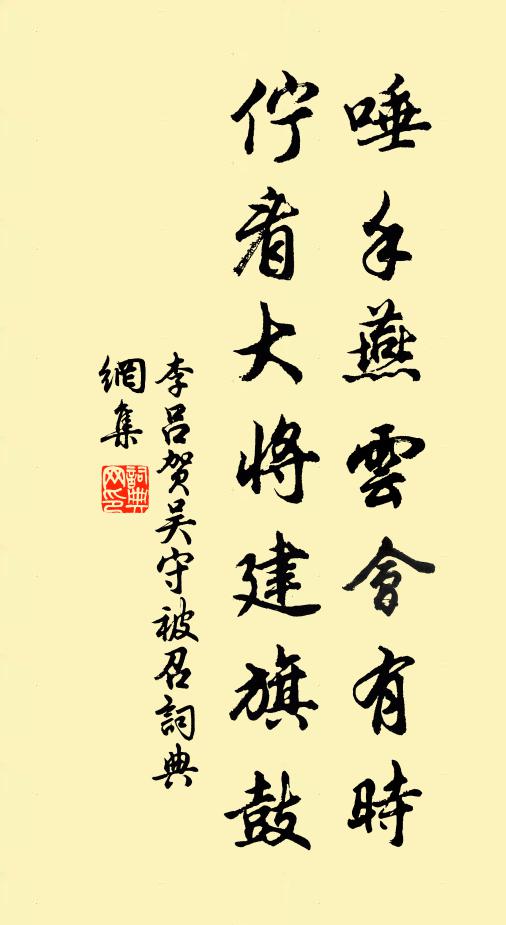 唾手燕雲會有時
佇看大將建旗鼓
李呂賀吴守被召詞典
網集
詞典網印